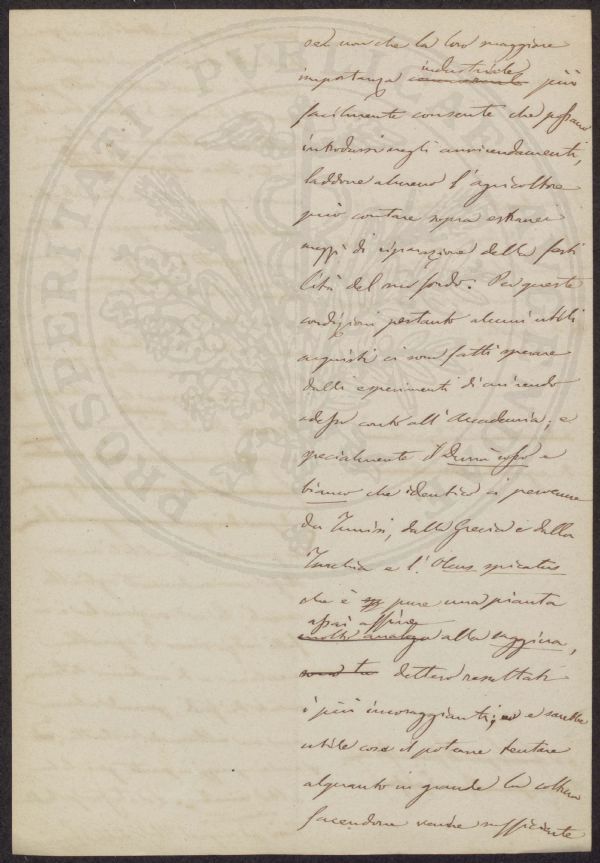 se non che la loro maggiore
industriale
importanza commerciale più
facilmente consente che possano
introdursi negli avvicendamenti,
laddove almeno l'agricoltore
può contare sopra estranei
mezzi di riparazione della ferti
lità del suo fondo. Per queste
condizioni pertanto alcuni utili
acquisti ci sono fatti sperare
dalli esperimenti di cui rendo
adesso conto all'Accademia; e
specialmente il Durra rosso e
bianco che identico ci pervenne
da Tunisi, dalla Grecia e dalla
Turchia e l'Olcus spicatus
che è pure una pianta
assai affine
molto analoga alla saggina,
dettero resultati
i più incoraggianti; e sarebbe
utile cosa il poterne tentare
alquanto in grande la coltura
facendone venire sufficiente
PROSPERITATI PVBLICAE AVGENDAE